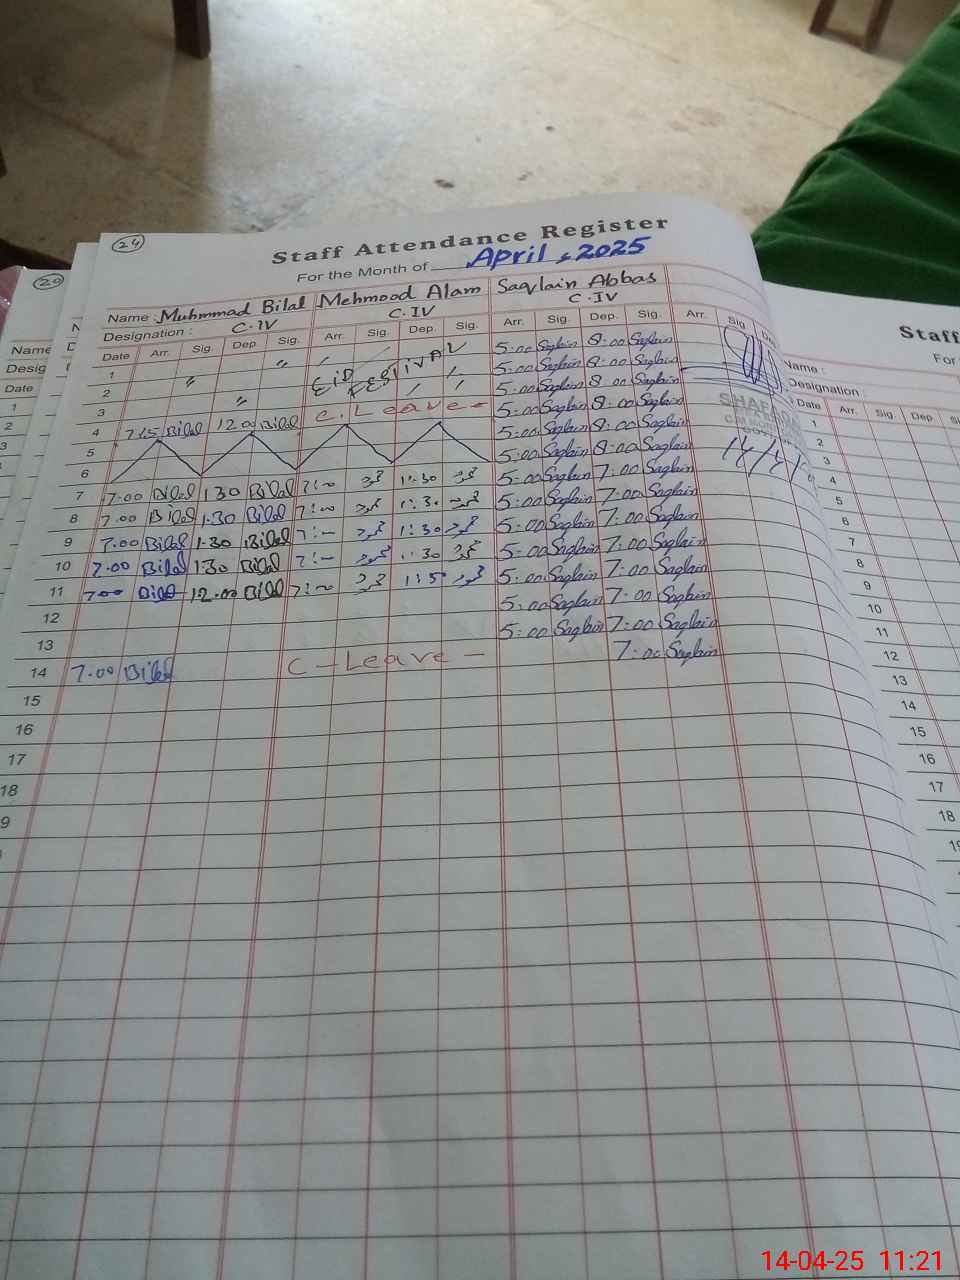 24
Staff Attendance Register
For the Month of April, 2025
Name : Muhmmad Bilal Mehmood Alam Saqlain Abbas
Designation : C.IV C.IV C.IV
Date Arr. Sig. Dep. Sig. Arr. Sig. Dep. Sig. Arr. Sig. Dep. Sig. Arr. Sig.
1 " EID FESTIVAL 5:00 Saqlain 8:00 Saqlain
2 " 5:00 Saqlain 8:00 Saqlain
3 " 5:00 Saqlain 8:00 Saqlain
4 7:15 Bilal 12.00 Bilal C. Leave - 5:00 Saqlain 8:00 Saqlain
5 5:00 Saqlain 8:00 Saqlain
6 5:00 Saqlain 8:00 Saqlain
7 7.00 Bilal 1.30 Bilal 7:00 محمود 1:30 محمود 5:00 Saqlain 7:00 Saqlain
8 7.00 Bilal 1.30 Bilal 7:00 محمود 1:30 محمود 5:00 Saqlain 7:00 Saqlain
9 7.00 Bilal 1.30 Bilal 7:00 محمود 1:30 محمود 5:00 Saqlain 7:00 Saqlain
10 7.00 Bilal 1.30 Bilal 7:00 محمود 1:30 محمود 5:00 Saqlain 7:00 Saqlain
11 7.00 Bilal 12.00 Bilal 7:00 محمود محمود 5:00 Saqlain 7:00 Saqlain
12 5:00 Saqlain 7:00 Saqlain
13 5:00 Saqlain 7:00 Saqlain
14 7.00 Bilal C - Leave - 7:00 Saqlain
15
16
17
18
9
20
Name
Desig
Date
1
2
3
Staff
For
Name :
Designation :
Date Arr. Sig. Dep. S
1
2
3
4
5
6
7
8
9
10
11
12
13
14
15
16
17
18
19
14-04-25 11:21